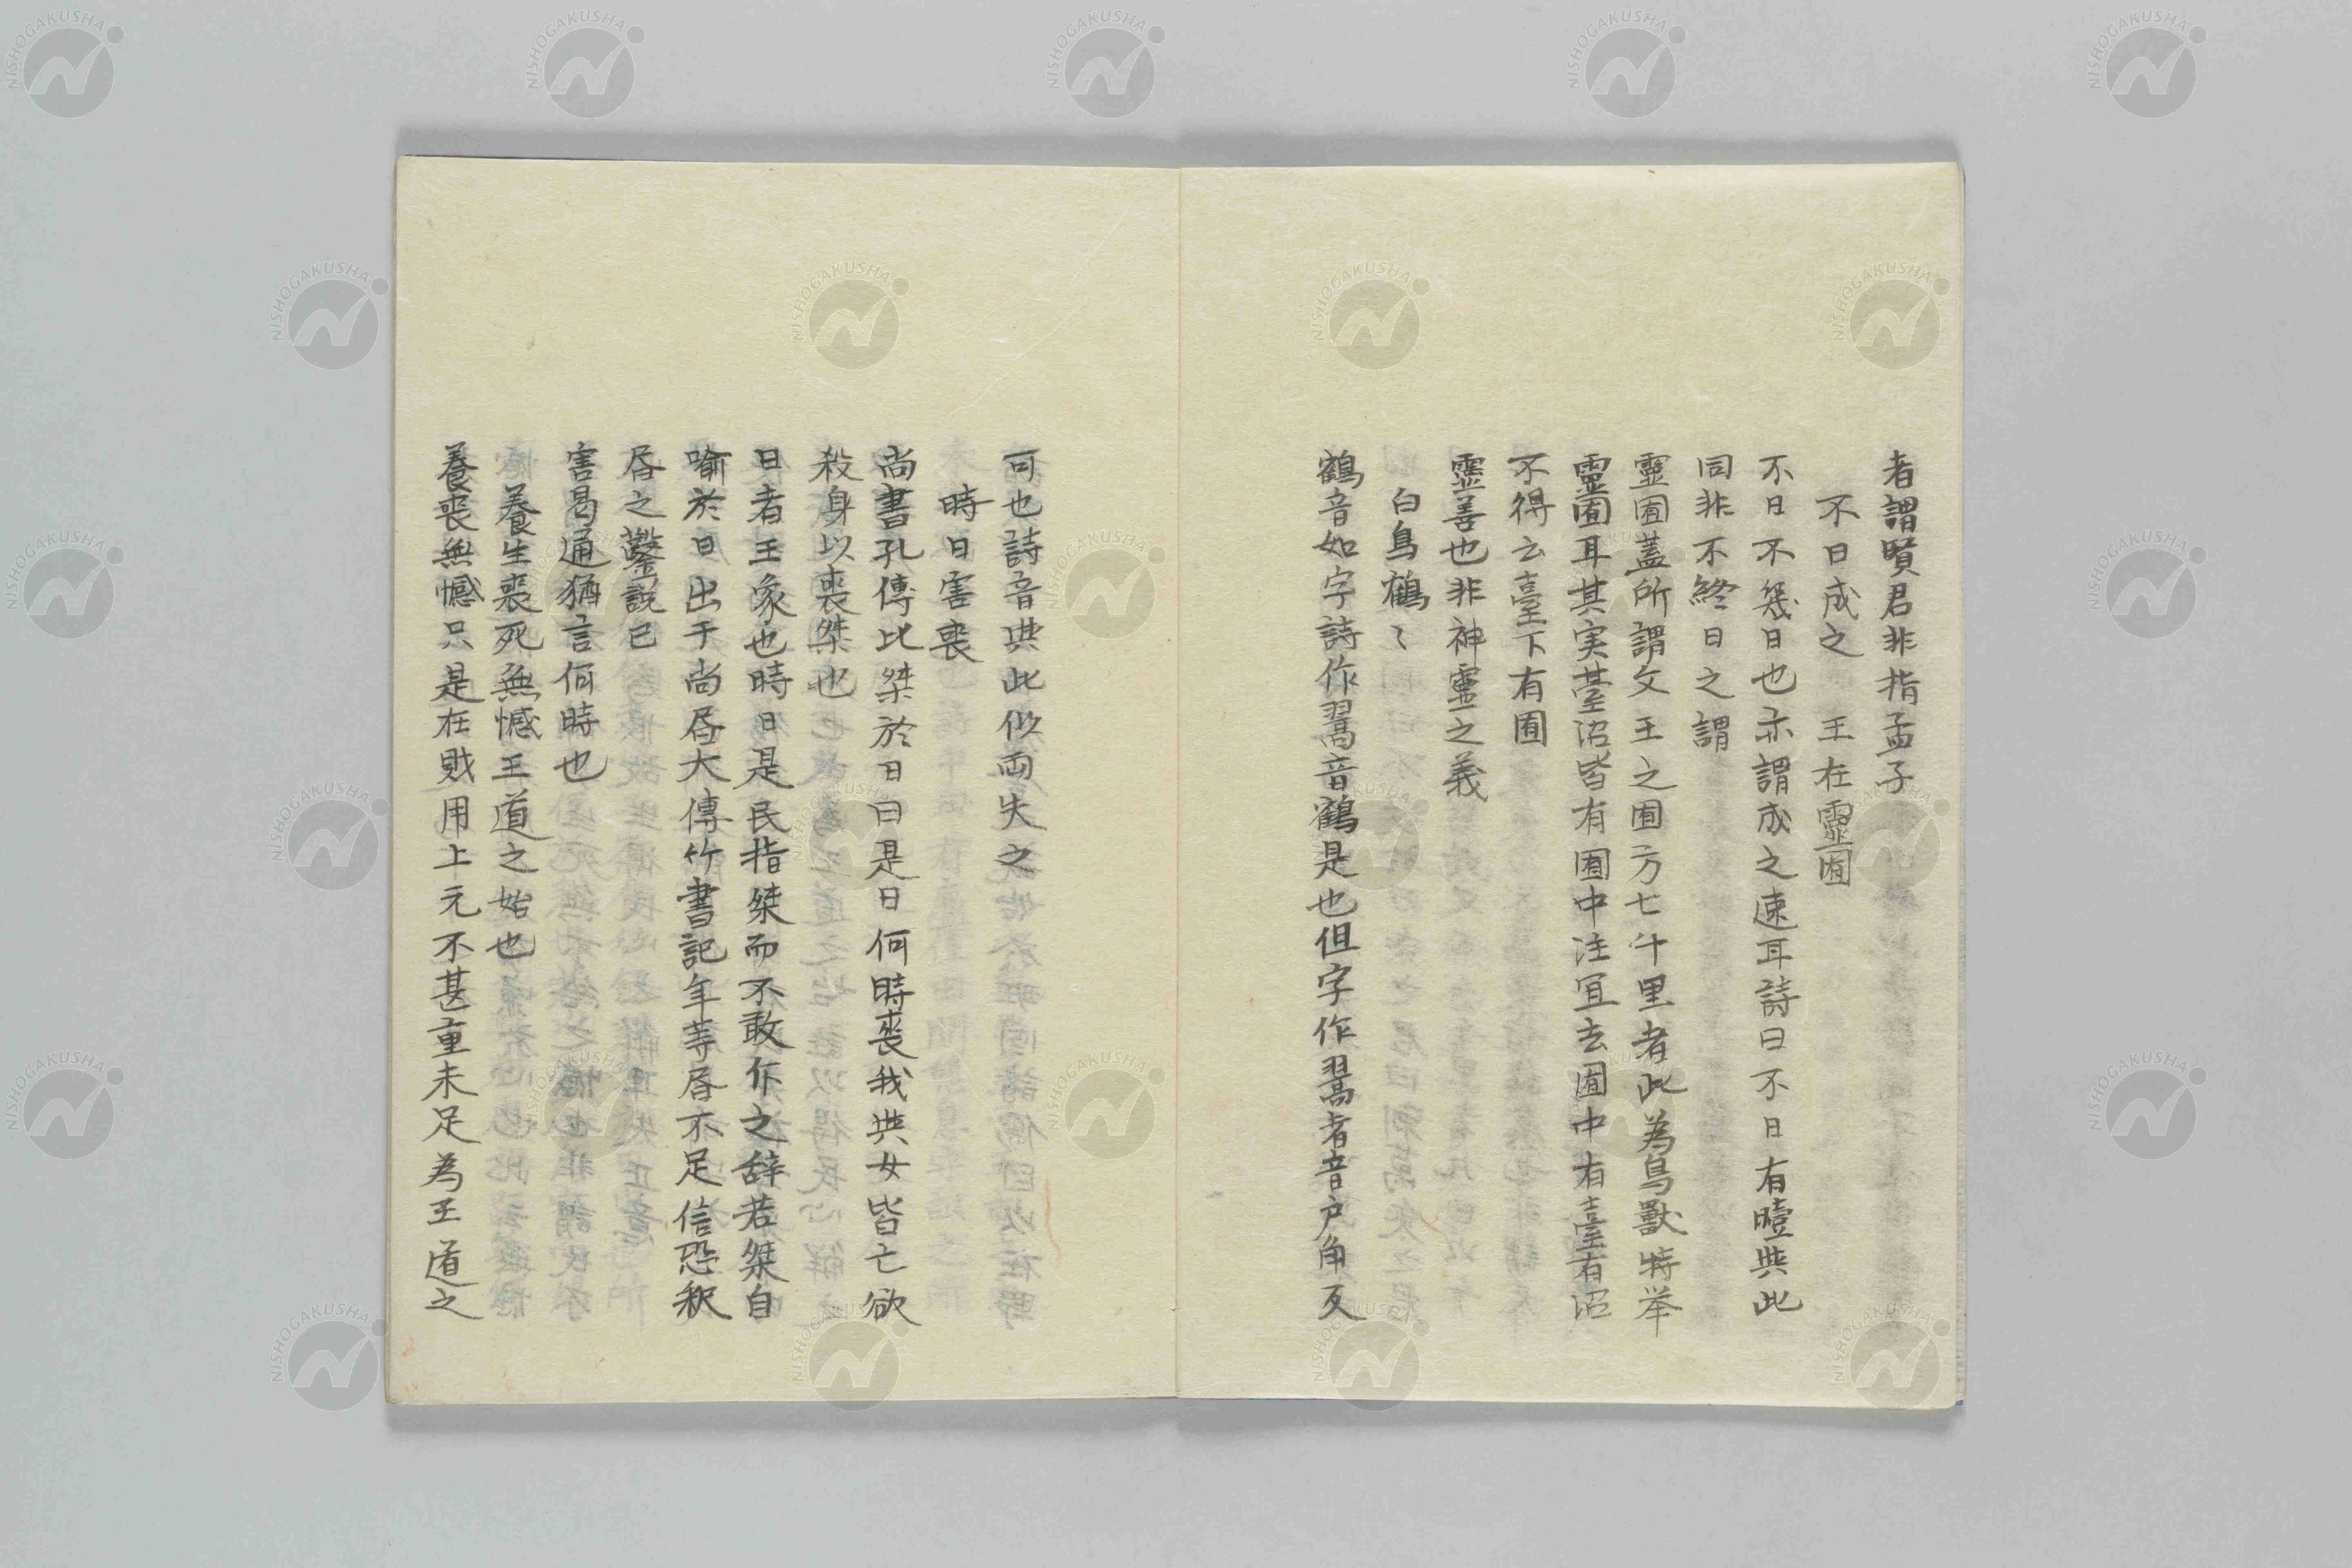 者謂賢君非指孟子
不日成之　王在靈囿
不日不幾日也亦謂成之速耳詩曰不日有曀與此
同非不終日之謂
靈囿蓋所謂文王之囿方七十里者此為鳥獸特举
靈囿耳其実基沼皆有囿中注宜去囿中有臺有沼
不得云臺下有囿
靈善也非神靈之義
白鳥鶴〻
鶴音如字詩作翯音鶴是也但字作翯者音戶角反
可也詩音與此似両失之
時日害喪
尚書孔傳比桀於日曰是日何時喪我與女皆亡欲
殺身以喪桀也
日者王象也時日是民指桀而不敢斥之辞若桀自
喻於日出于尚㫺大傳竹書記年等㫺不足信恐釈
㫺之鑿説已
害曷通猶言何時也
養生喪死無憾王道之始也
養喪無憾只是在戝用上元不甚重未足為王道之
NISHOGAKUSHA